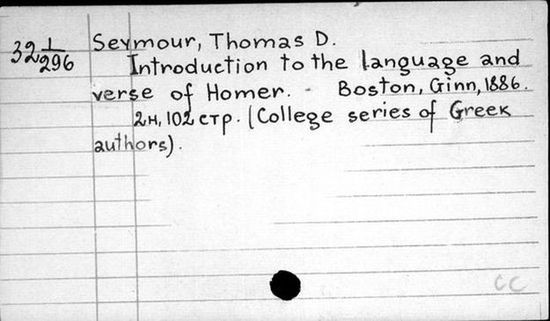 32 1/296
Seymour, Thomas D.
Introduction to the language and
verse of Homer. - Boston, Ginn, 1886.
2н, 102 стр. (College series of Greek
authors).
CC